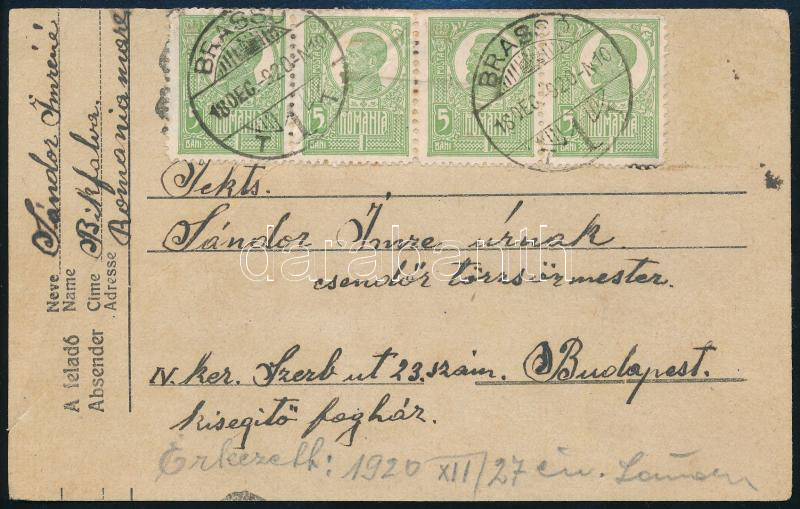 BRASSÓ
18 DEC. 920-N10
BRASSÓ
18 DEC. 920-N10
5 BANI ROMANIA
5 BANI ROMANIA
5 BANI ROMANIA
5 BANI ROMANIA
A feladó
Absender
Neve
Name
Sándor Imréné
Címe
Adresse
Bikfalva.
Romania mare
Tekts.
Sándor Imre úrnak
csendőr törzsőrmester.
IV. ker. Szerb ut 23. szám. Budapest.
kisegitő fogház.
Érkezett: 1920 XII/27 én.
darabanth